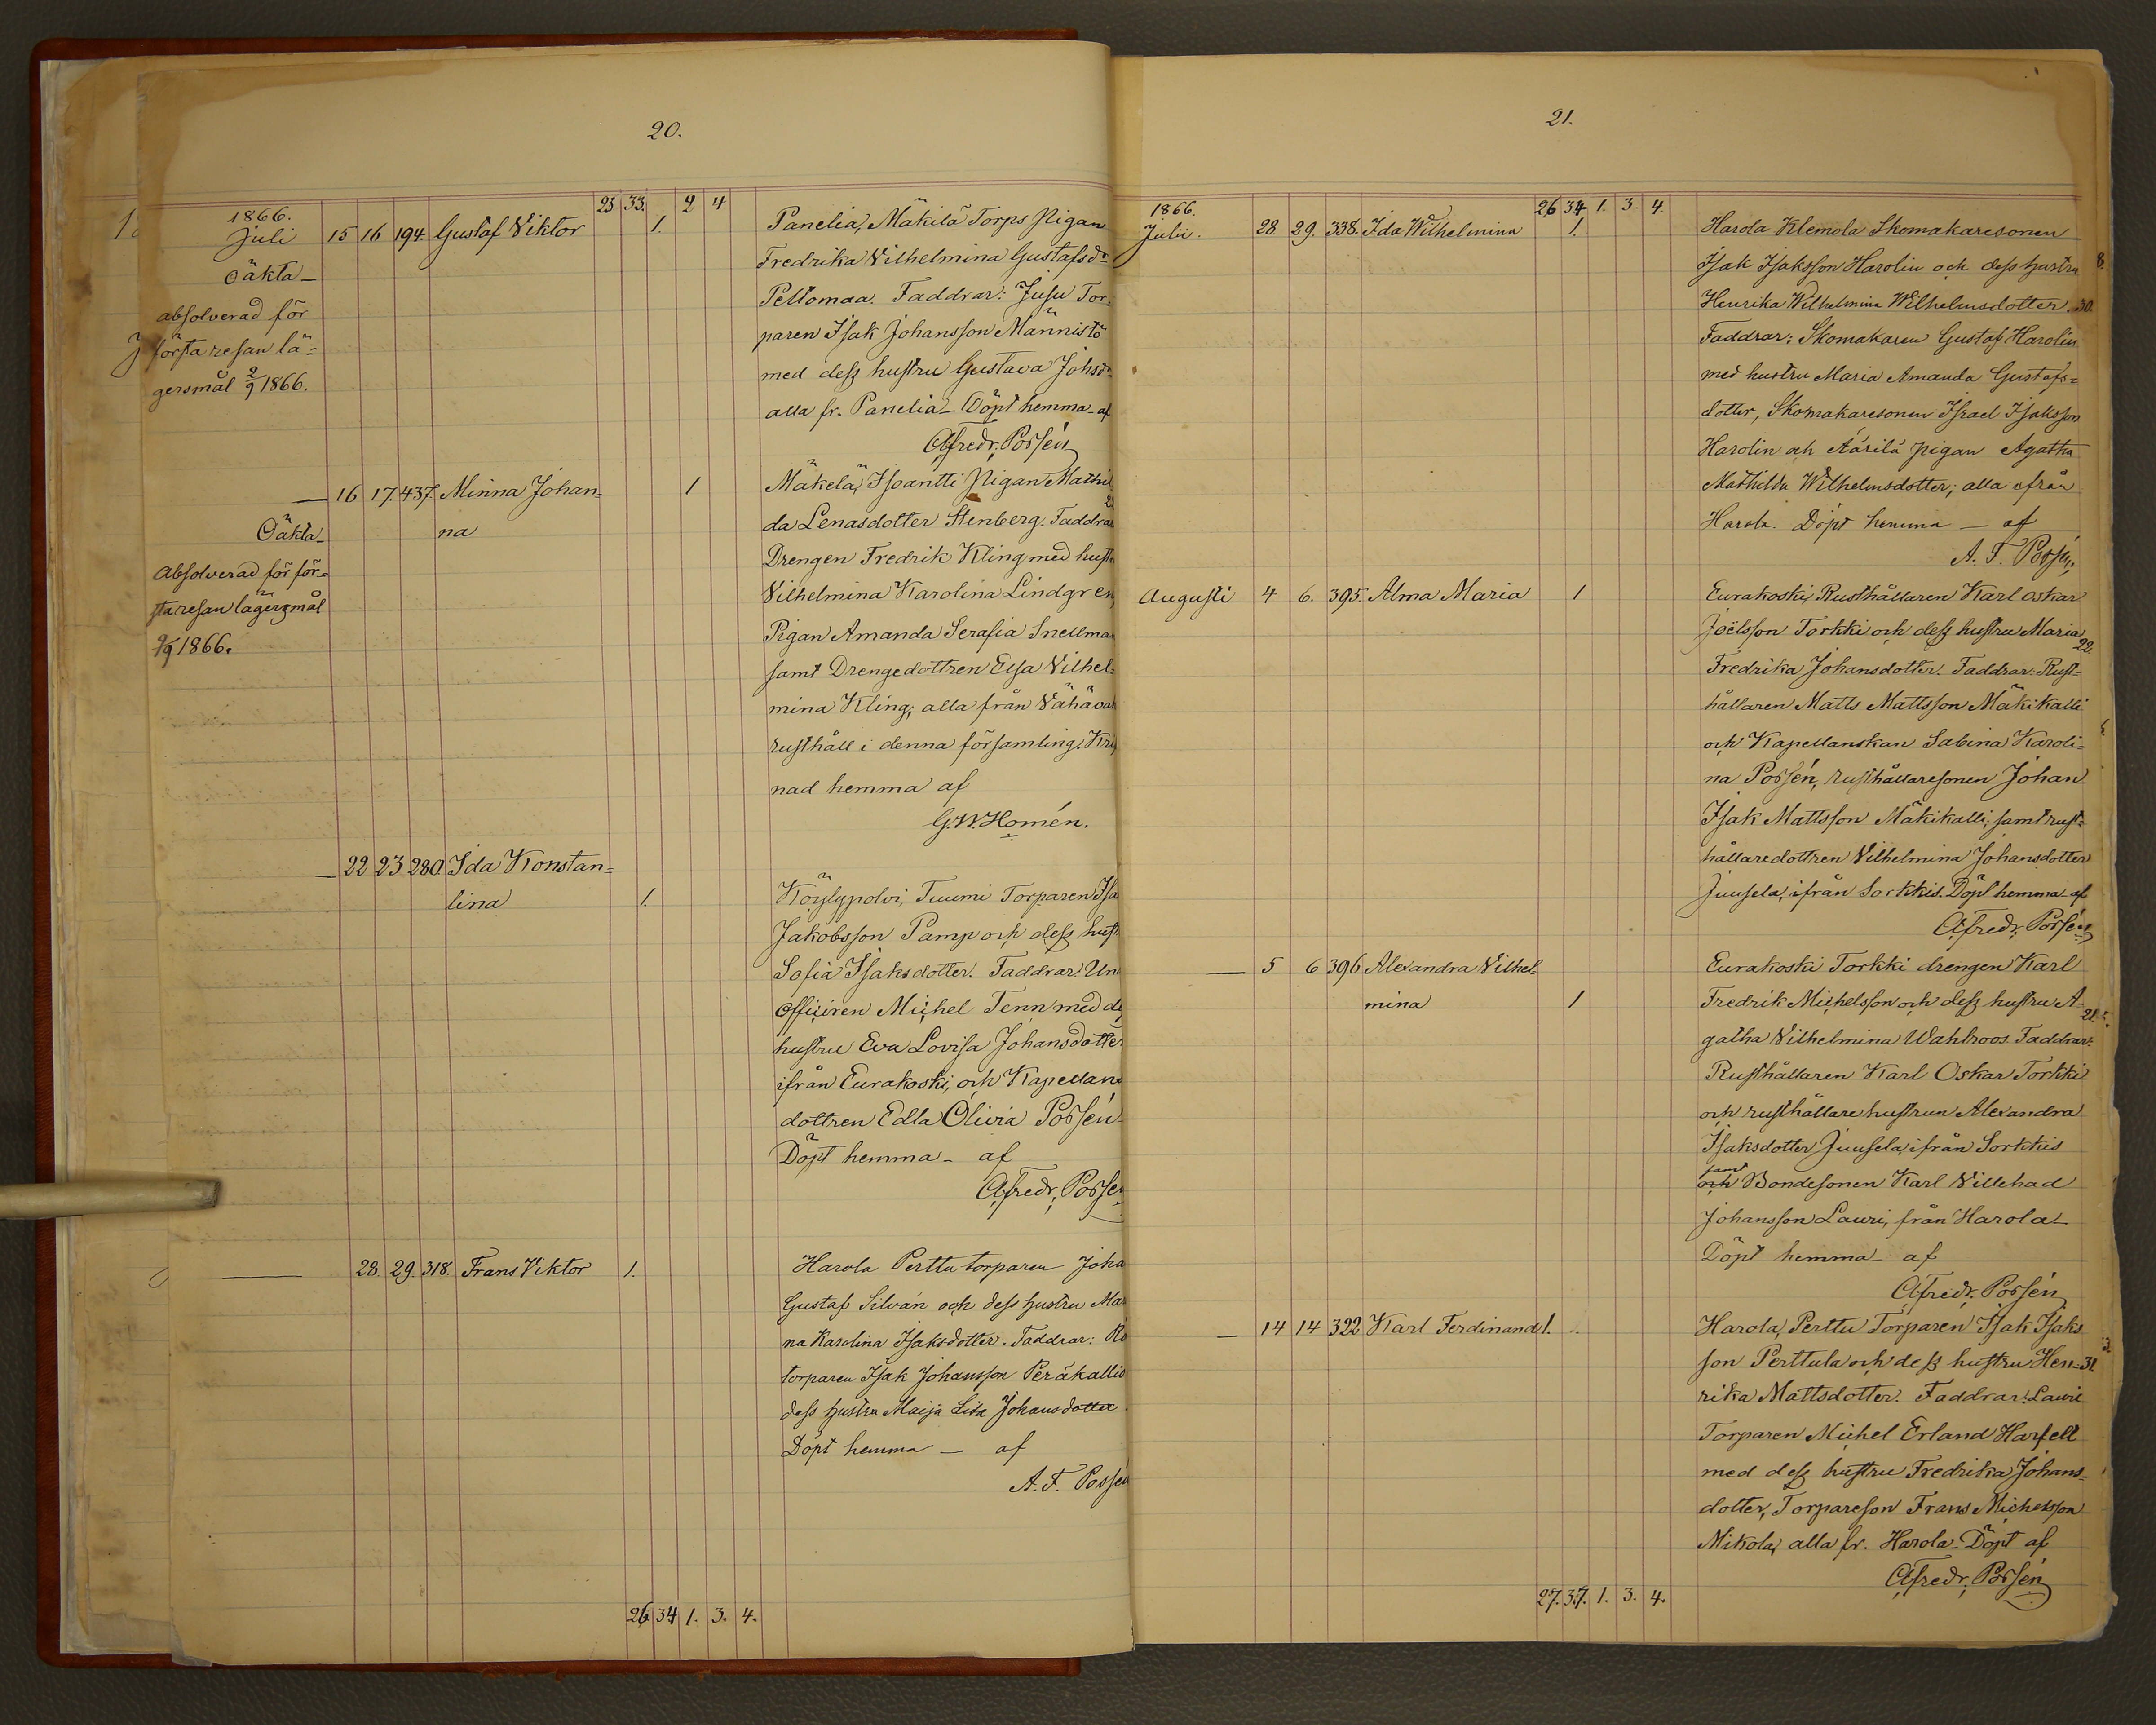 20.
23 33. 2 4
1866.
Juli 15 16 194. Gustaf Viktor 1. Panelia, Mäkilä Torps Pigan
Oäkta Fredrika Vilhelmina Gustafsdr
absolverad för Peltomaa. Faddrar: Jusu Tor=
första resan lä= paren Isak Johansson Männistö
gersmål 2/9 1866. med dess hustru Gustava Johsdr
alla fr. Panelia Döpt hemma af
Afredr. Possén
16 17. 437. Minna Johan= 1 Mäkelä, Isoantti Pigan Mathil
Oäkta na da Lenasdotter Stenberg. Faddrar
Absolverad för för= Drengen Fredrik Kling med hustru
sta resan lägersmål Vilhelmina Karolina Lindgren,
2/9 1866. Pigan Amanda Serafia Snellman
samt Drengedottren Elsa Vilhel=
mina Kling; alla från Vähä
rusthåll i denna församling. Kris
nad hemma af
G.W. Homén.
22 23 280 Ida Konstan=
tina 1. Köylypolvi, Tuumi Torparen Isa
Jakobsson Pamp och dess hust
Sofia Isaksdotter. Faddrar: Un
officiren Michel Tenn med de
hustru Eva Lovisa Johansdotter
ifrån Eurakoski, och Kapellans
dottren Edla Olivia Possén
Döpt hemma af
Afredr. Possén
28. 29. 318. Frans Viktor 1. Harola Perttu torparen Joha
Gustaf Silván och dess hustru Mar
na Karolina Isaksdotter. Faddrar: Ro
torparen Isak Johansson Peräkallio
dess hustru Maija Lisa Johansdotter
Döpt hemma — af
A. F. Possén
26 34 1. 3. 4.
21.
26 34 1. 3. 4.
1866.
Julii. 28 29. 338. Ida Wilhelmina 1. Harola Klemola Skomakaresonen
Isak Isaksson Harolin och dess hustru 8.
Henrika Wilhelmina Wilhelmsdotter. 30.
Faddrar: Skomakaren Gustaf Harolin
med hustru Maria Amanda Gustafs=
dotter, Skomakaresonen Israel Isaksson
Harolin och Äärilä pigan Agatha
Mathilda Wilhelmsdotter; alla ifrån
Harola. Döpt hemma — af
A. F. Possén,
Augusti 4 6. 395. Alma Maria 1 Eurakoski, Rusthållaren Karl Oskar
Joëlsson Torkki och dess hustru Maria 22.
Fredrika Johansdotter. Faddrar: Rust=
hållaren Matts Mattsson Mäkikalli
och Kapellanskan Sabina Karoli=
na Possén, rusthållaresonen Johan
Isak Mattsson Mäkikalli; samt rust=
hållaredottren Vilhelmina Johansdotter
Juusela, ifrån Sorkkis. Döpt hemma af
Afredr. Possén
5 6 396 Alexandra Vilhel= Eurakoski Torkki drengen Karl
mina 1 Fredrik Michelsson och dess hustru A= 21.
gatha Vilhelmina Wahlroos. Faddrar:
Rusthållaren Karl Oskar Torkki
och rusthållare hustrun Alexandra
Isaksdotter Juusela, ifrån Sorkkis
samt
och Bondesonen Karl Villehad
Johansson Lauri, från Harola
Döpt hemma af
Afredr. Possén
14 14 322 Karl Ferdinand 1. Harola, Perttu Torparen Isak Isaks
son Perttula och dess hustru Hen= 31.
rika Mattsdotter. Faddrar: Lauri
Torparen Michel Erland Harfelt
med dess hustru Fredrika Johans=
dotter, Torpareson Frans Michelsson
Mikola, alla fr. Harola. Döpt af
Afredr. Possén
27. 37. 1. 3. 4.